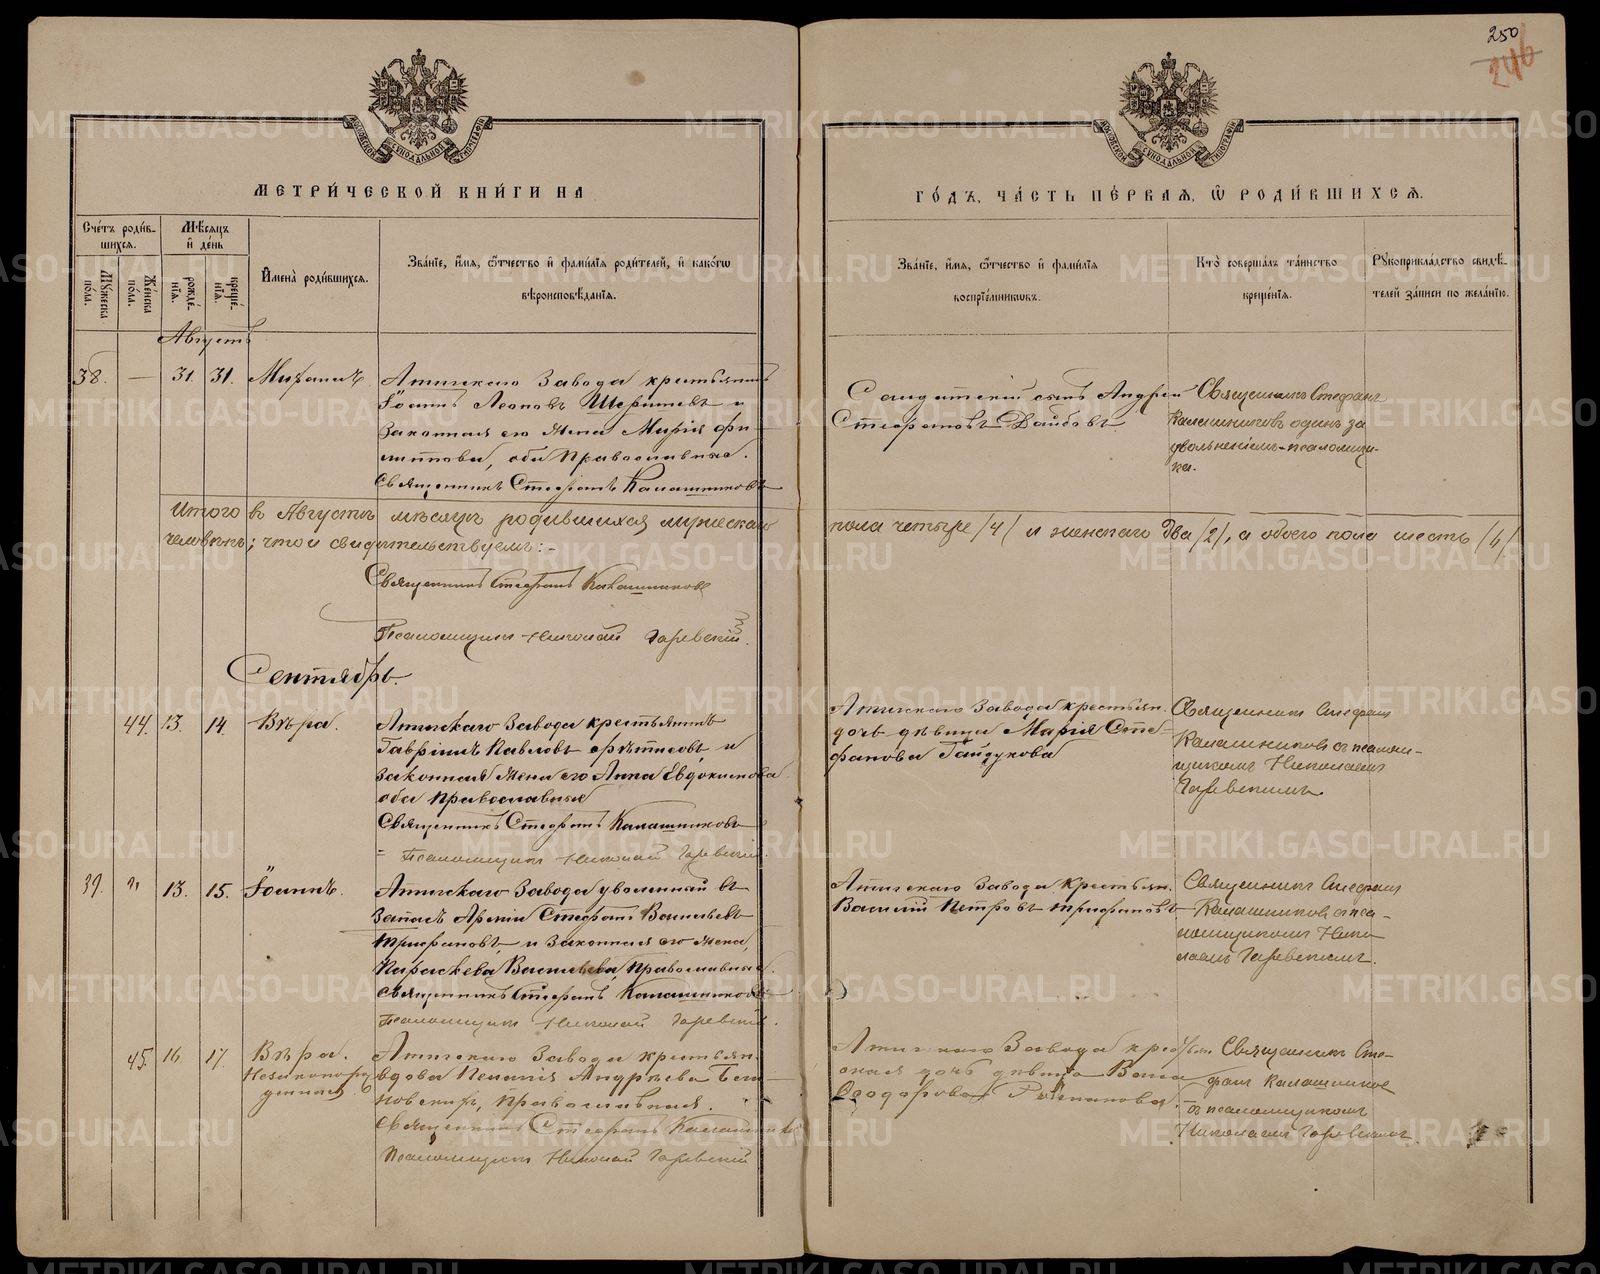 250
246
МОСКОВСКОЙ СУНОДАЛЬНОЙ ТИПОГРАФІИ
МОСКОВСКОЙ СУНОДАЛЬНОЙ ТИПОГРАФІИ
МЕТРИ́ЧЕСКОЙ КНИ́ГИ НА
ГО́ДЪ, ЧА́СТЬ ПЕ́РВАЯ, Ѡ РОДИ́ВШИХСЯ.
Сче́тъ роди́в-
шихся.
Мѣ́сяцъ
и҆ де́нь
Мꙋ́жеска
по́ла.
Же́нска
по́ла.
рожде́-
нїя.
креще́-
нїя.
И҆мена̀ роди́вшихся.
Зва́нїе, и҆́мя, ѻ҆́тчество и҆ фами́лїя роди́телей, и҆ како́гѡ
вѣроисповѣ́данїя.
Зва́нїе, и҆́мя, ѻ҆́тчество и҆ фами́лїя
воспрїе́мникѡвъ.
Кто̀ соверша́лъ та́инство
креще́нїя.
Рꙋкоприкла́дство свидѣ́-
телей за́писи по жела́нїю.
Августъ
38. — 31. 31. Михаилъ
Атигскаго Завода крестьянинъ
Іоаннъ Леоновъ и
законная его жена Марія Фи-
липпова, оба Православные.
Священникъ Стефанъ Калашниковъ
Солдатскій сынъ Андрей
Стефановъ
Священникъ Стефанъ
Калашниковъ одинъ за
увольненіемъ псаломщи-
ка.
Итого въ Августѣ мѣсяцѣ родившихся мужескаго
пола четыре /4/ и женскаго два /2/, а обоего пола шесть /6/
человѣкъ; что и свидѣтельствуемъ: -
Священникъ Стефанъ Калашниковъ
Псаломщикъ Николай
Сентябрь.
44. 13. 14. Вѣра.
Атигскаго Завода крестьянинъ
Гавріилъ Павловъ и
законная жена его Анна Евдокимова
оба Православные
Священникъ Стефанъ Калашниковъ
Псаломщикъ Николай
Атигскаго Завода крестьян.
дочь дѣвица Марія Сте-
фанова Гайдукова
Священникъ Стефанъ
Калашниковъ съ псалом-
щикомъ Николаемъ
39. " 13. 15. Іоаннъ.
Атигскаго Завода уволенный въ
запасъ Арміи Стефанъ Васильевъ
Трифановъ и законная его жена
Параскева Васильева, Православные.
Священникъ Стефанъ Калашниковъ
Псаломщикъ Николай
Атигскаго Завода Крестьян.
Василій Петровъ Трифановъ
Священникъ Стефанъ
Калашниковъ съ пса-
ломщикомъ Нико-
лаемъ
45. 16. 17. Вѣра.
Незаконорож
денная
Атигскаго Завода крестьян.
вдова Пелагія Андреева
Православная.
Священникъ Стефанъ Калашниковъ
Псаломщикъ Николай
Атигскаго Завода крестьян
ская дочь дѣвица
Ѳеодорова
Священникъ Сте-
фанъ Калашников
съ псаломщикомъ
Николаемъ